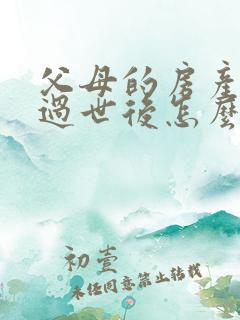 父母的房產
過世後怎麼
初壹
未经同意禁止转载